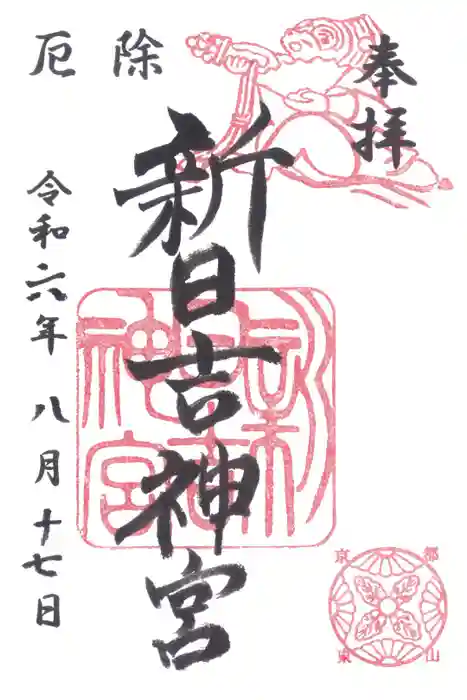 奉拝
除厄
新日吉神宮
令和六年八月十七日
新日吉神宮
京都東山